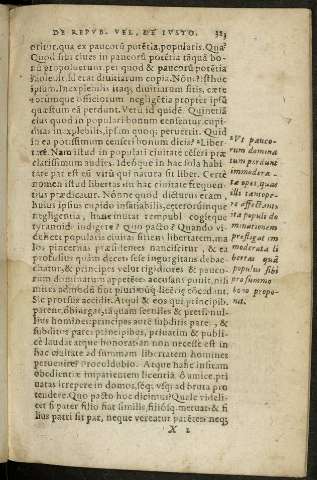 DE REPVB. VEL, ET IVSTO. 323
oritur, qua ex paucorū potētia, popularis. Qua?
Quod sibi ciues in paucorū potētia tāquā bo-
nū proposuerunt, per quod & paucorū potētia
diuitiarum copia. Nón? isthoc
ipsum. Inexplenilis itaq; diuitiarum sitis, cæte
rorumque officiorum negligētia propter ipsū
quæstum eā perdunt. Vera id quidē. Quin etiā
ciues quod in populari bonum censentur, cupi-
ditas inexplebilis, ipsum quoq; peruertit. Quid
in ea potissimum censeri bonum dicis? Liber-
tatē. Nam istud in populari ciuitate cēseri præ
clarissimum audies. Ideoque in hac sola habi
tare par est eū vitā qui natura sit liber. Certè
nomen istud libertas sit in hac ciuitate frequen-
tius prædicatur. Nónne quod dicturus eram,
huius ipsius cupido insatiabilis, cæterorūque
negligentia, hanc mutat rempubl. cogitque
tyrannidē indigere? Quo pacto? Quando vi-
delicet popularis ciuitas sitiens libertatem, ma
los pincernas præsidentes nanciscitur, & ea
profusius quàm decet sese ingurgitans debac-
chatur, & principes velut rigidiores & pauco-
rum dominatum appetētes accusans punit, nisi
mites admodū fiat plurimūq; licētię cōcedant.
Sic prorsus accidit. Atqui & eos qui principib.
parent, obiurgat, tāquam seruiles & pretii nul-
lius homines: principes autē subditis pares, &
subditos pares principibus, priuatim & publi-
cè laudat atque honorat: an non necesse est in
hac ciuitate ad summam libertatem homines
peruenire? Proculdubio. Atque hanc insitam
obedientiæ impatientem licentiā, ô amice, pri
uatas irrepere in domos, seq; vsq; ad bruta pro
tendere. Quo pacto hoc dicimus? Quale videli-
cet si pater filio fiat similis, filiósq; metuat: & fi
lius patri sit par, neque vereatur patrē: neq;
X 2
Vt pauco-
rum domina
tum perdunt
immodera-
tæ opes, quas
illi tantope-
re affectant:
ita populi do
minationem
prefligat im
moderata li
bertas quā
populus sibi
pro summo
bono propo-
nit.